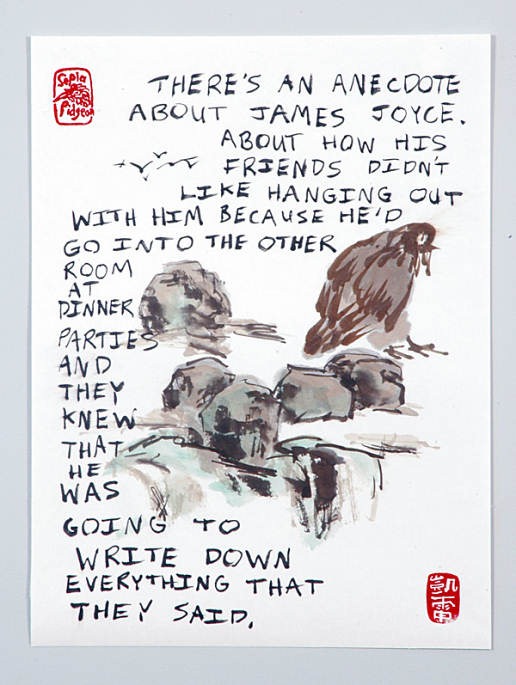 Sepia
Pidgeon
THERE'S AN ANECDOTE
ABOUT JAMES JOYCE.
ABOUT HOW HIS
FRIENDS DIDN'T
LIKE HANGING OUT
WITH HIM BECAUSE HE'D
GO INTO THE OTHER
ROOM
AT
DINNER
PARTIES
AND
THEY
KNEW
THAT
HE
WAS
GOING TO
WRITE DOWN
EVERYTHING THAT
THEY SAID.
凱